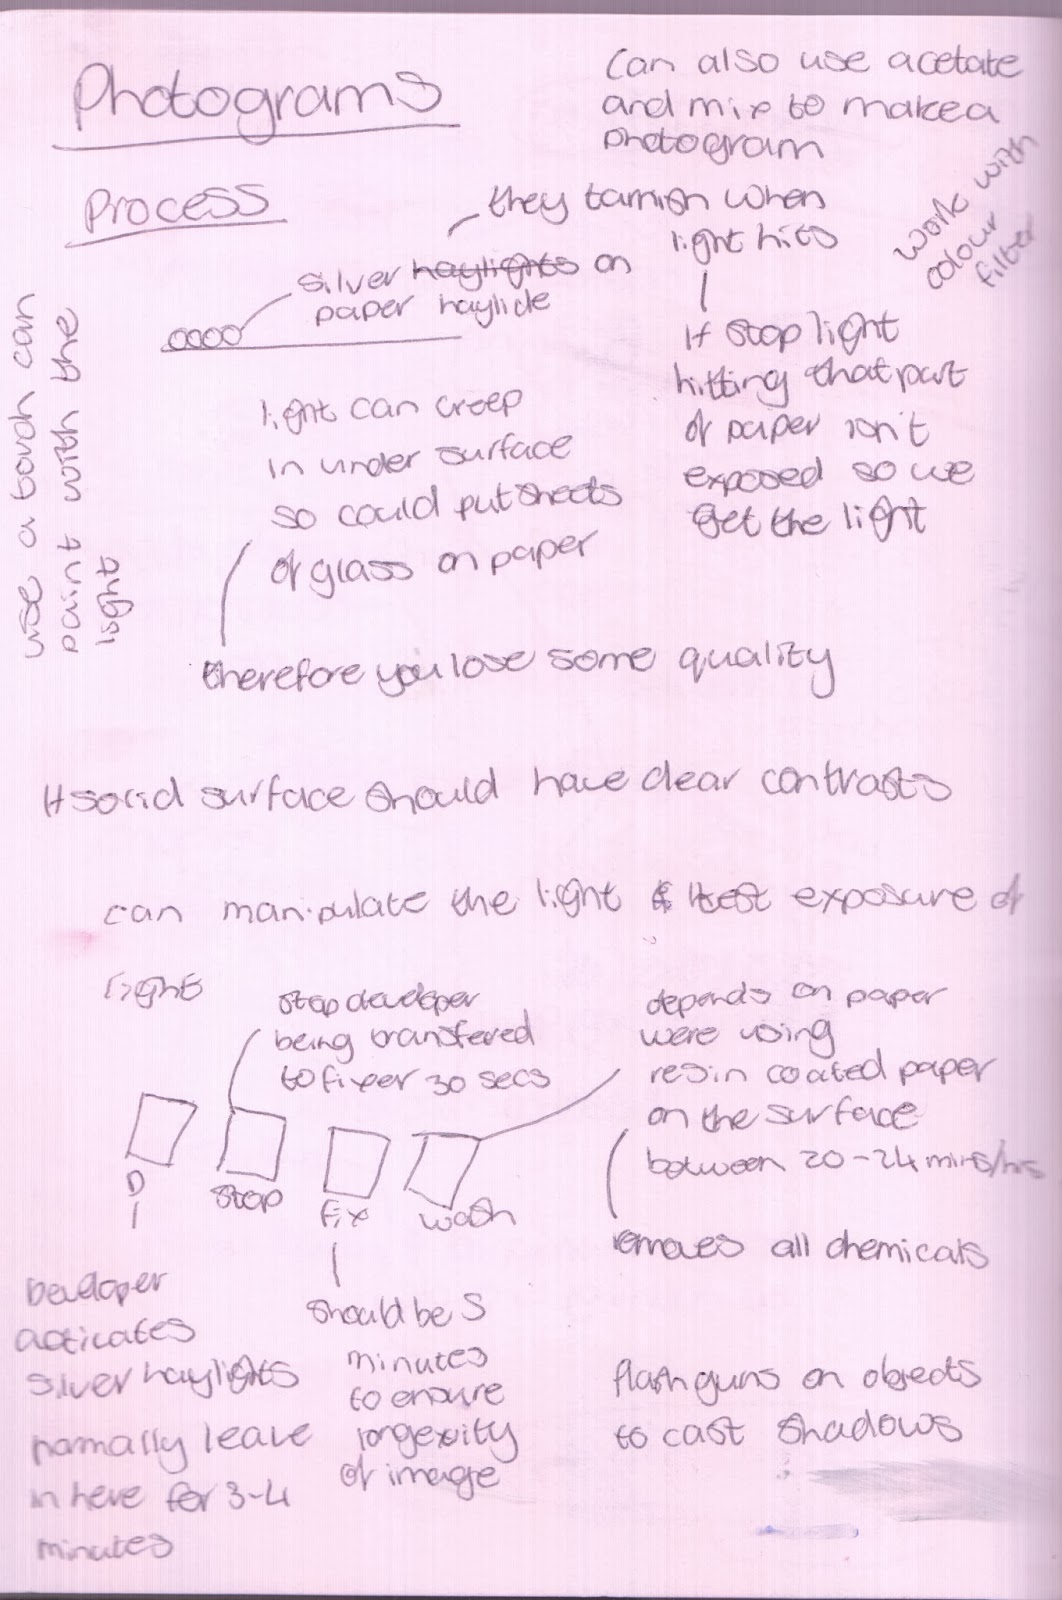 Photograms
can also use acetate
and mix to make a
photogram
work with
colour
filter
Process
they tarnish when
light hits
silver haylights on
paper haylide
If stop light
hitting that part
of paper isn't
exposed so we
get the light
use a bouch can
paint with the
light
light can creep
in under surface
so could put sheets
of glass on paper
therefore you lose some quality
If solid surface should have clear contrasts
can manipulate the light & test exposure of
light
stop developer
being transfered
to fixer 30 secs
depends on paper
were using
resin coated paper
on the surface
between 20-24 mins/hrs
removes all chemicals
D
stop
fix
wash
Developer
activates
silver haylights
normally leave
in here for 3-4
minutes
should be 5
minutes
to ensure
longevity
of image
flash guns on objects
to cast shadows